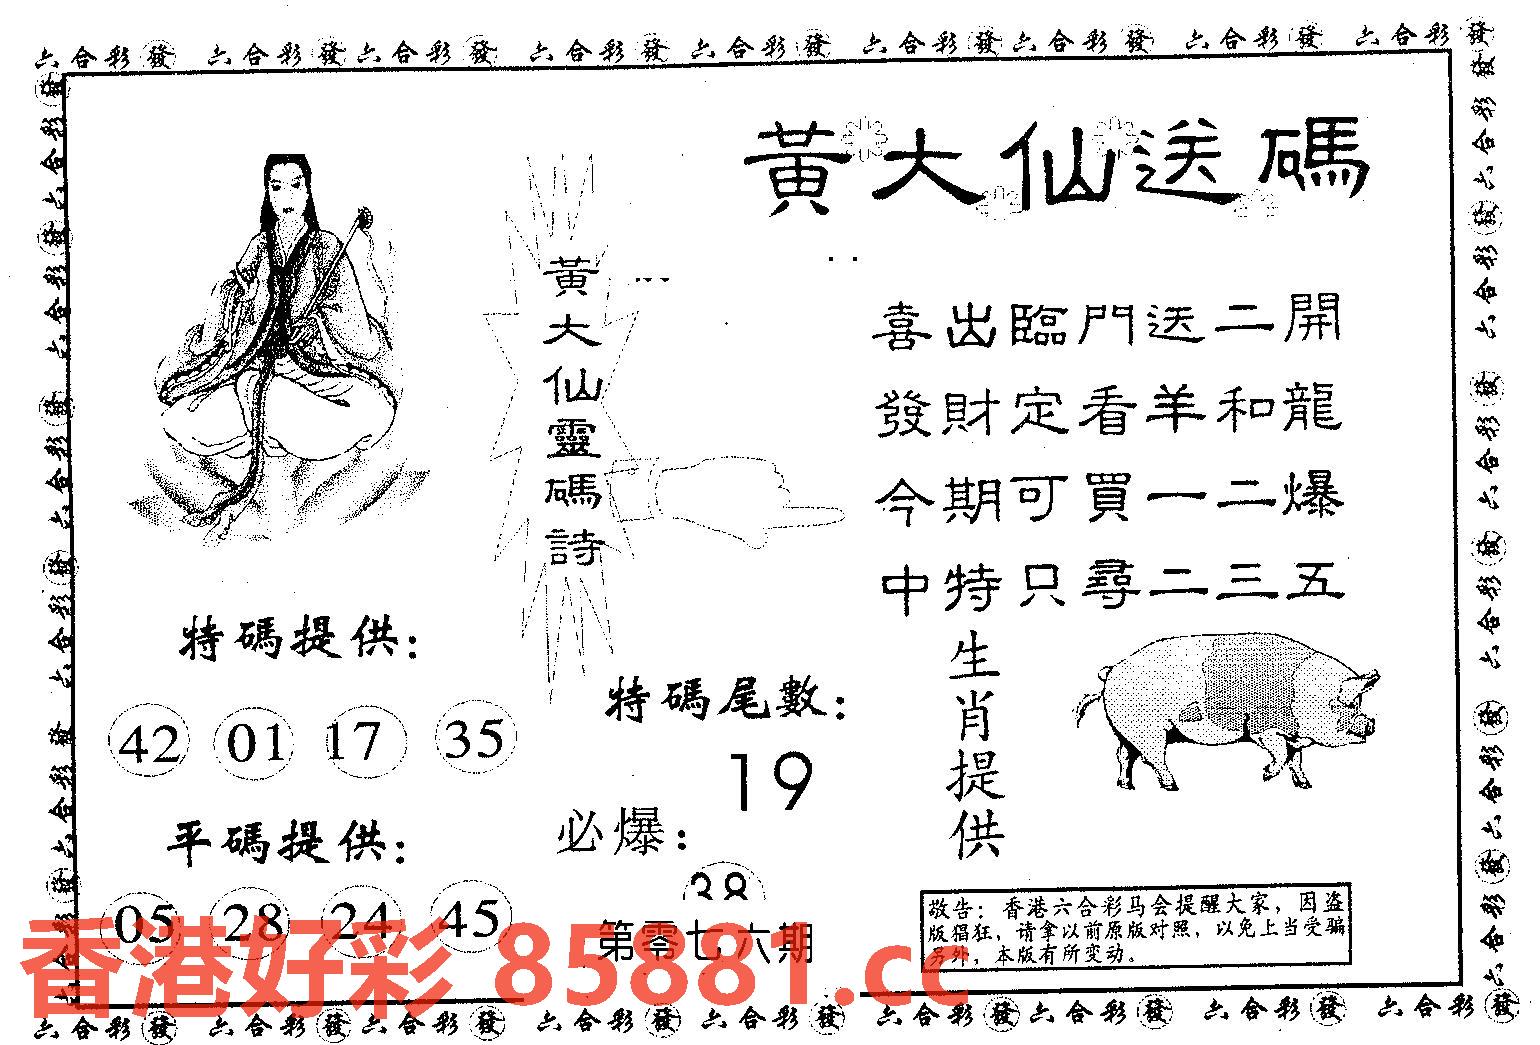 六合彩發 六合彩發六合彩發 六合彩發 六合彩發 六合彩發六合彩發 六合彩發 六合彩發
黃大仙送碼
黃大仙靈碼詩
喜出臨門送二開
發財定看羊和龍
今期可買一二爆
中特只尋二三五
特碼提供：
42 01 17 35
平碼提供：
05 28 24 45
特碼尾數：
19
必爆：
38
第零七六期
生肖提供
敬告：香港六合彩马会提醒大家，因盗
版猖狂，请拿以前原版对照，以免上当受骗
另外，本版有所变动。
香港好彩 85881.cc
六合彩發 六合彩發六合彩發 六合彩發 六合彩發 六合彩發六合彩發 六合彩發 六合彩發